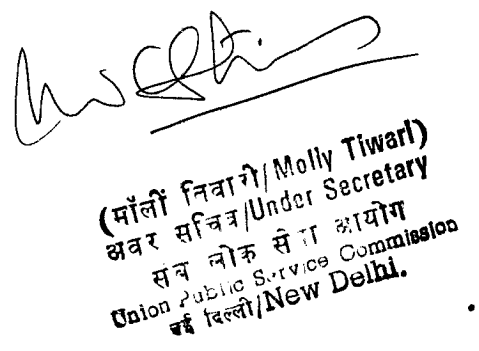 (मॉली तिवारी/Molly Tiwari)
अवर सचिव/Under Secretary
संघ लोक सेवा आयोग
Union Public Service Commission
नई दिल्ली/New Delhi.